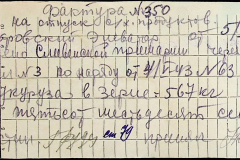 Фактура № 350
на отпуск сух. продуктов
ровский Элеватор от 5/
Славянской при через
№ 3 по наряду от 4/V 43 № 63
кукуруза в зерне = 567 кг
пятсот шестьдесят се
ст 79 принял